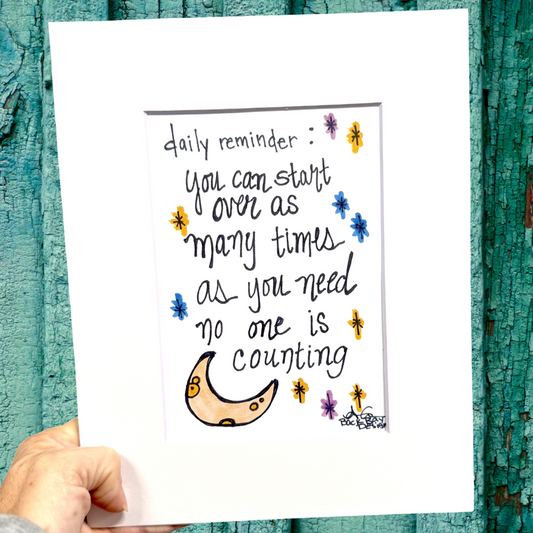 daily reminder :
you can start
over as
many times
as you need
no one is
counting